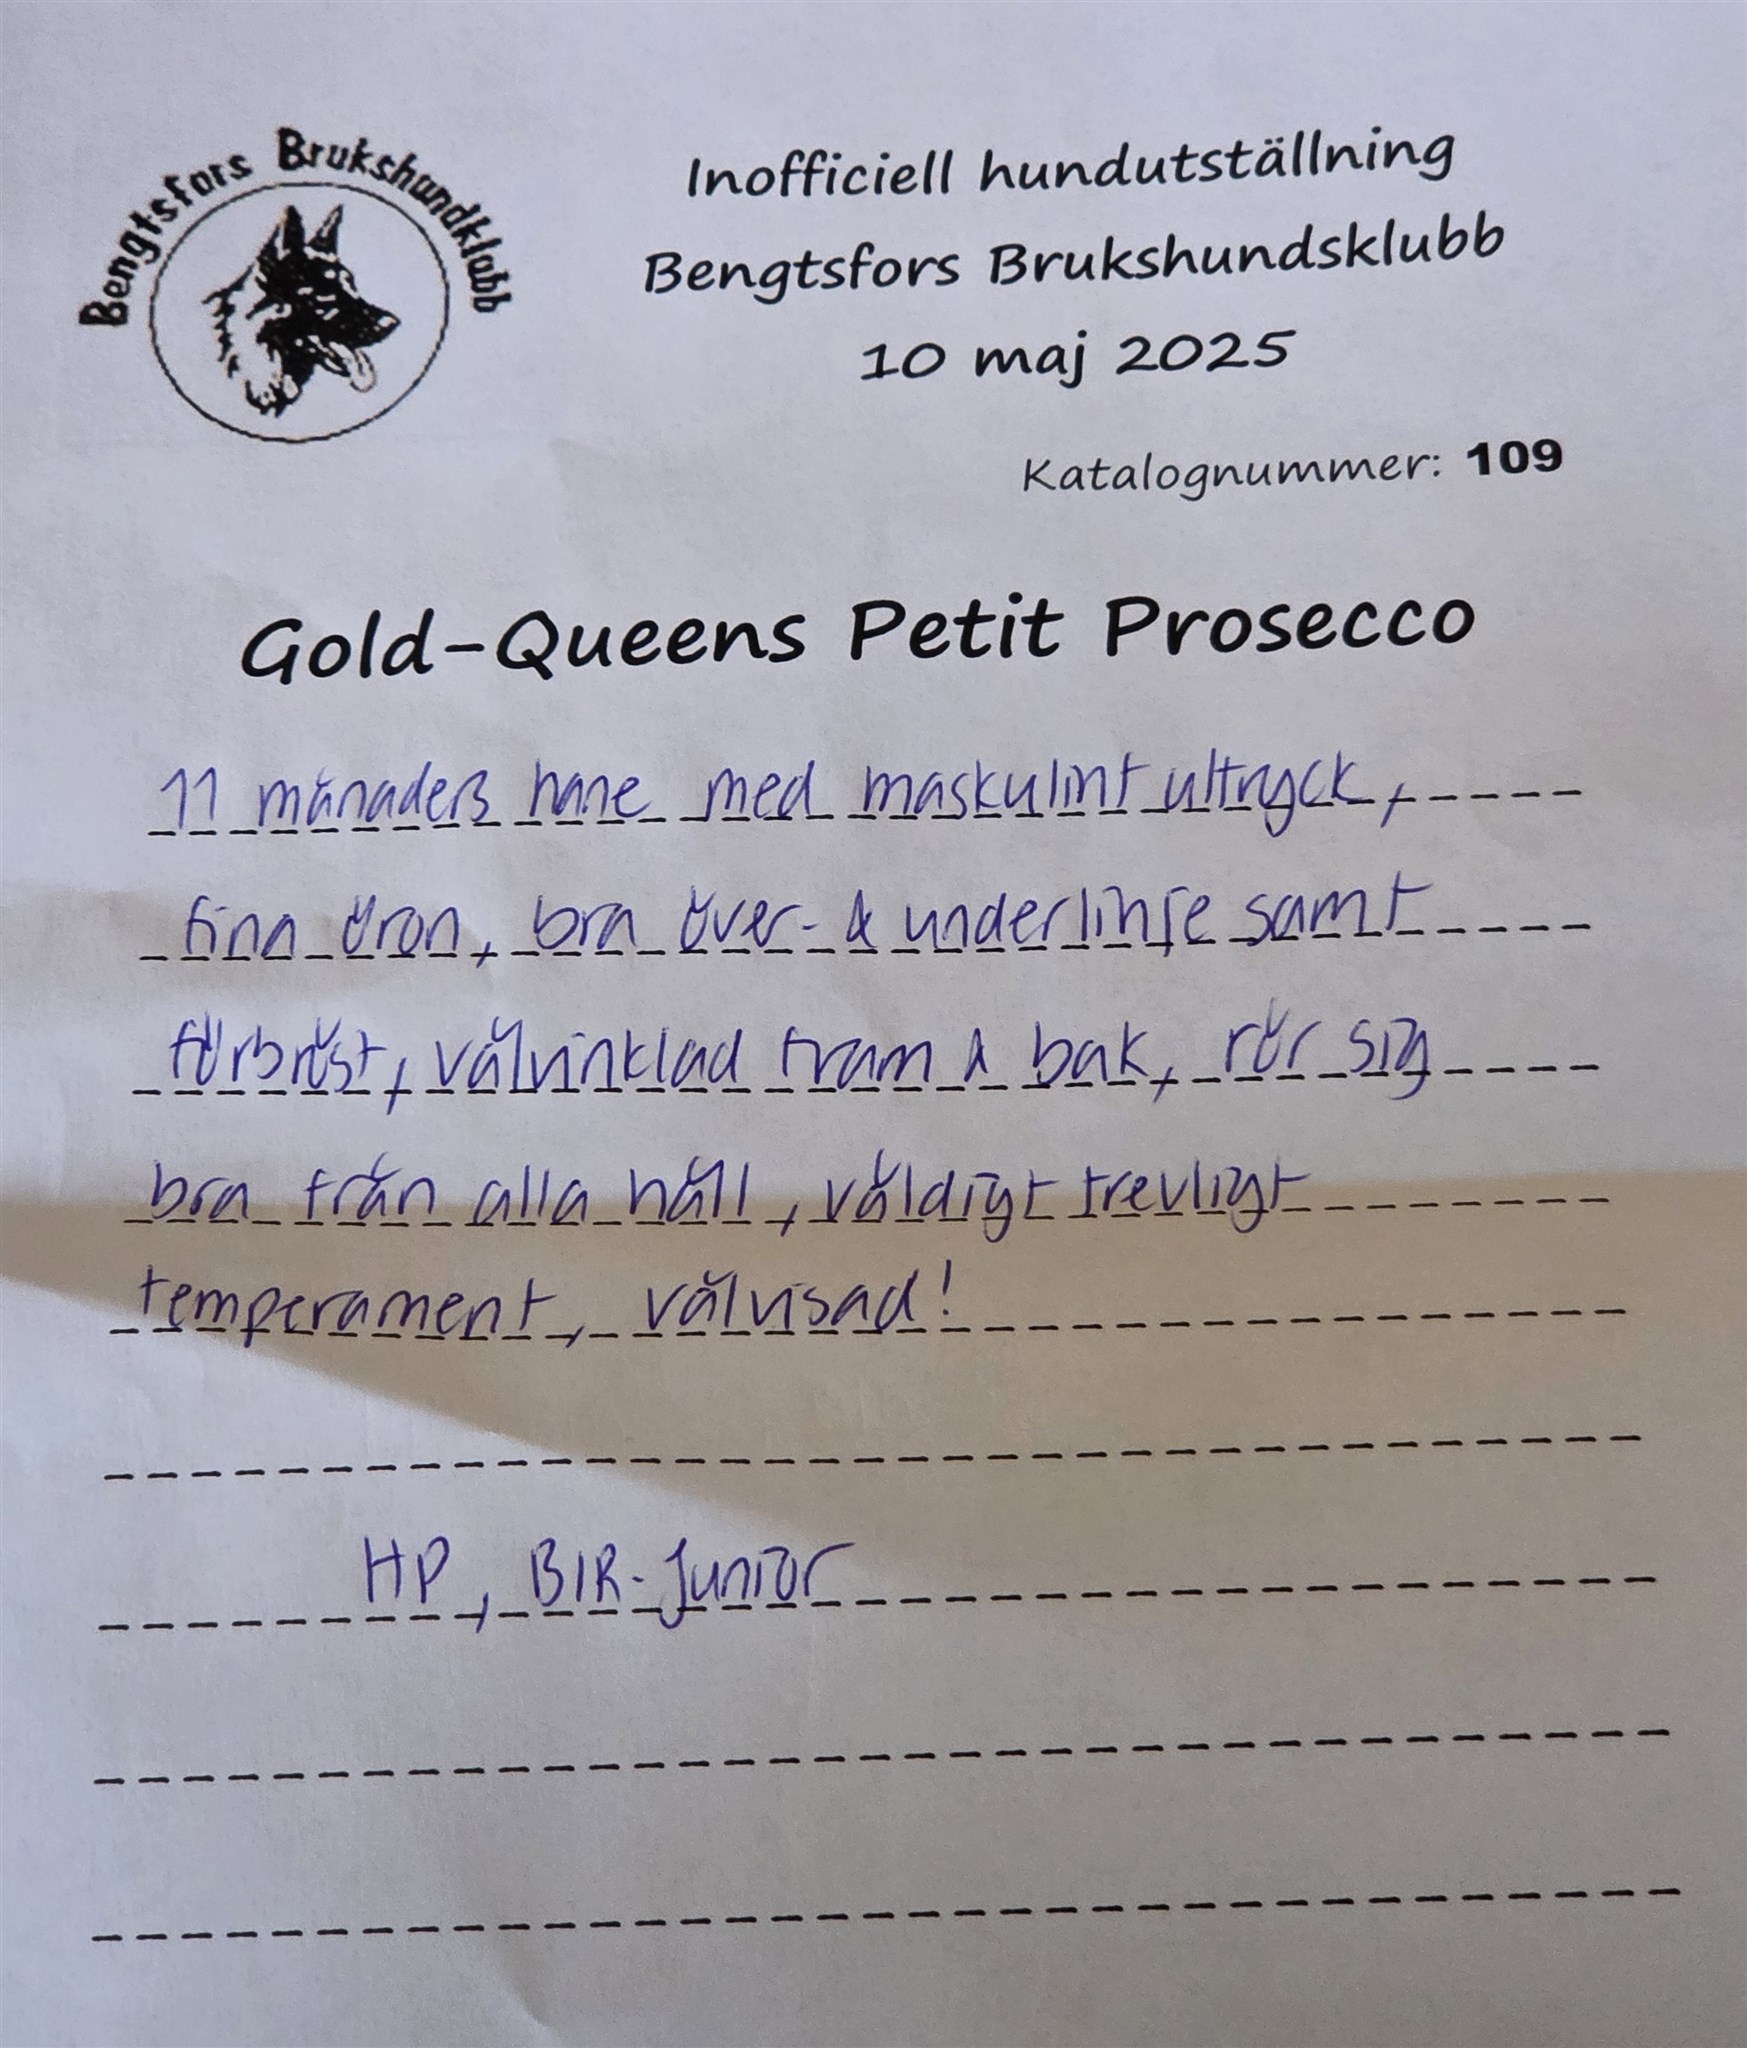 Bengtsfors Brukshundklubb
Inofficiell hundutställning
Bengtsfors Brukshundsklubb
10 maj 2025
Katalognummer: 109
Gold-Queens Petit Prosecco
11 månaders hane med maskulint uttryck,
fina öron, bra över- & underlinje samt
förbröst, välvinklad fram & bak, rör sig
bra från alla håll, väldigt trevligt
temperament, välvisad!
HP, BIR-Junior